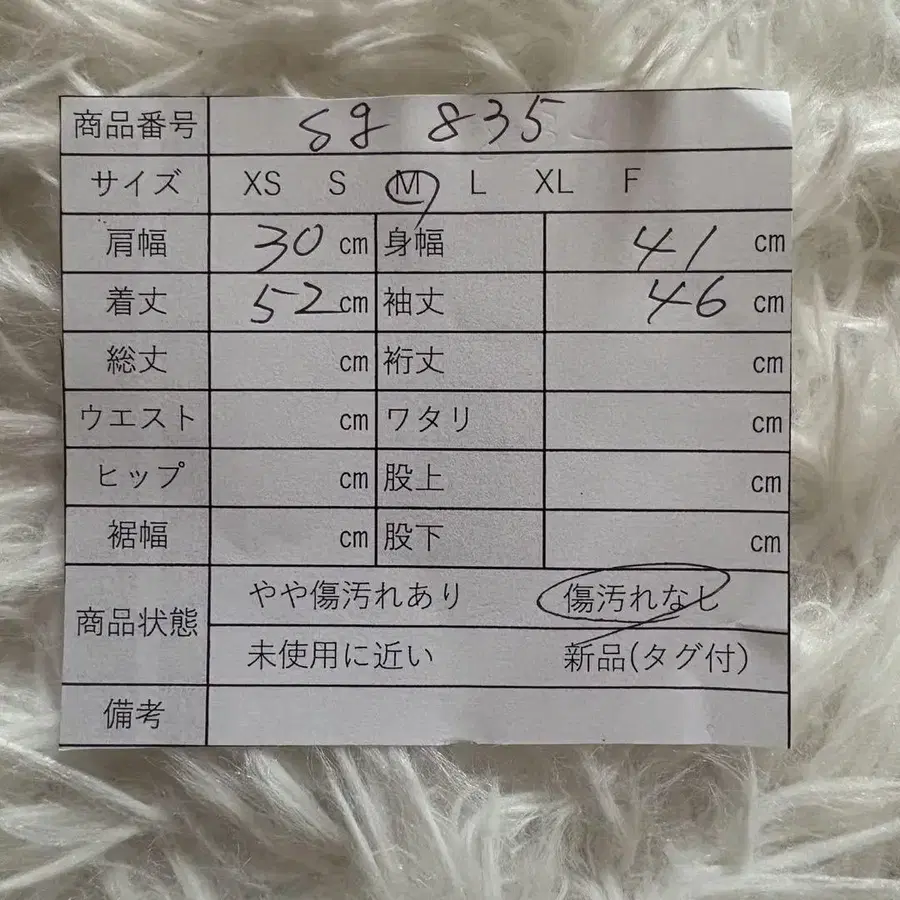 商品番号 sg 835
サイズ XS S M L XL F
肩幅 30 cm 身幅 41 cm
着丈 52 cm 袖丈 46 cm
総丈 cm 裄丈 cm
ウエスト cm ワタリ cm
ヒップ cm 股上 cm
裾幅 cm 股下 cm
商品状態 やや傷汚れあり 傷汚れなし
未使用に近い 新品(タグ付)
備考